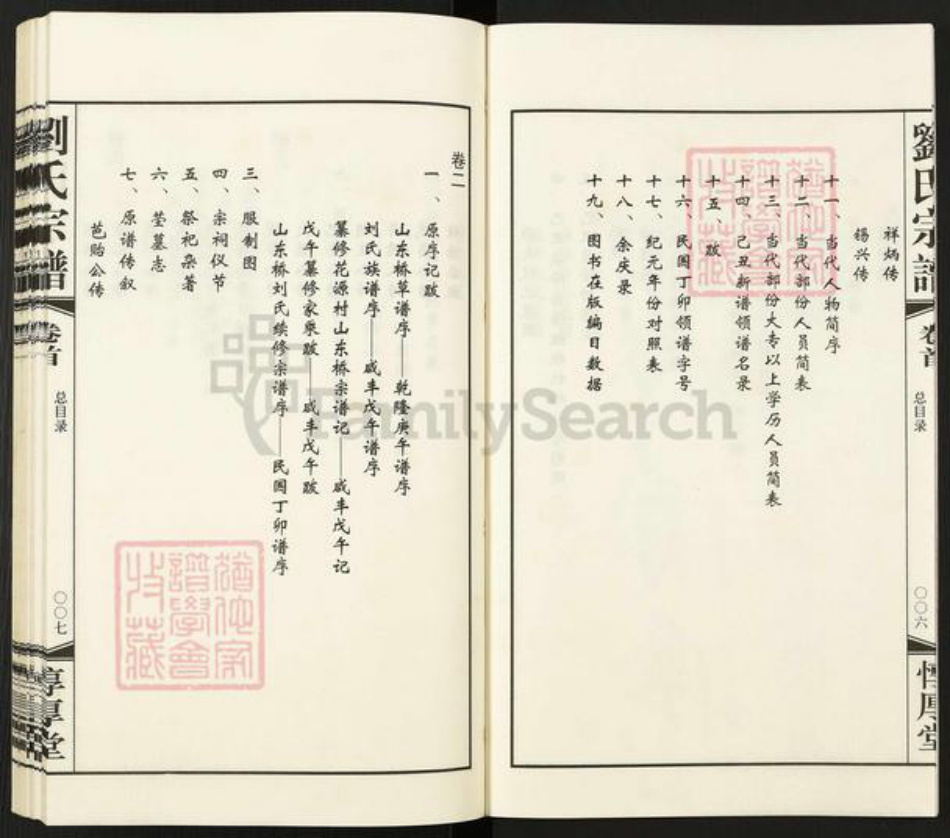 劉氏宗譜
卷首
总目录
〇〇六
惇厚堂
祥炳传
锡兴传
十一、当代人物简序
十二、当代部份人员简表
十三、当代部份大专以上学历人员简表
十四、己丑新谱领谱名录
十五、跋
十六、民国丁卯领谱字号
十七、纪元年份对照表
十八、余庆录
十九、图书在版编目数据
卷二
一、原序记跋
山东桥草谱序——乾隆庚午谱序
刘氏族谱序——咸丰戊午谱序
纂修花源村山东桥宗谱记——咸丰戊午记
戊午纂修家乘跋——咸丰戊午跋
山东桥刘氏续修宗谱序——民国丁卯谱序
三、服制图
四、宗祠仪节
五、祭祀杂著
六、茔墓志
七、原谱传叙
芭贻公传
劉氏宗譜
卷首
总目录
〇〇七
惇厚堂
FamilySearch